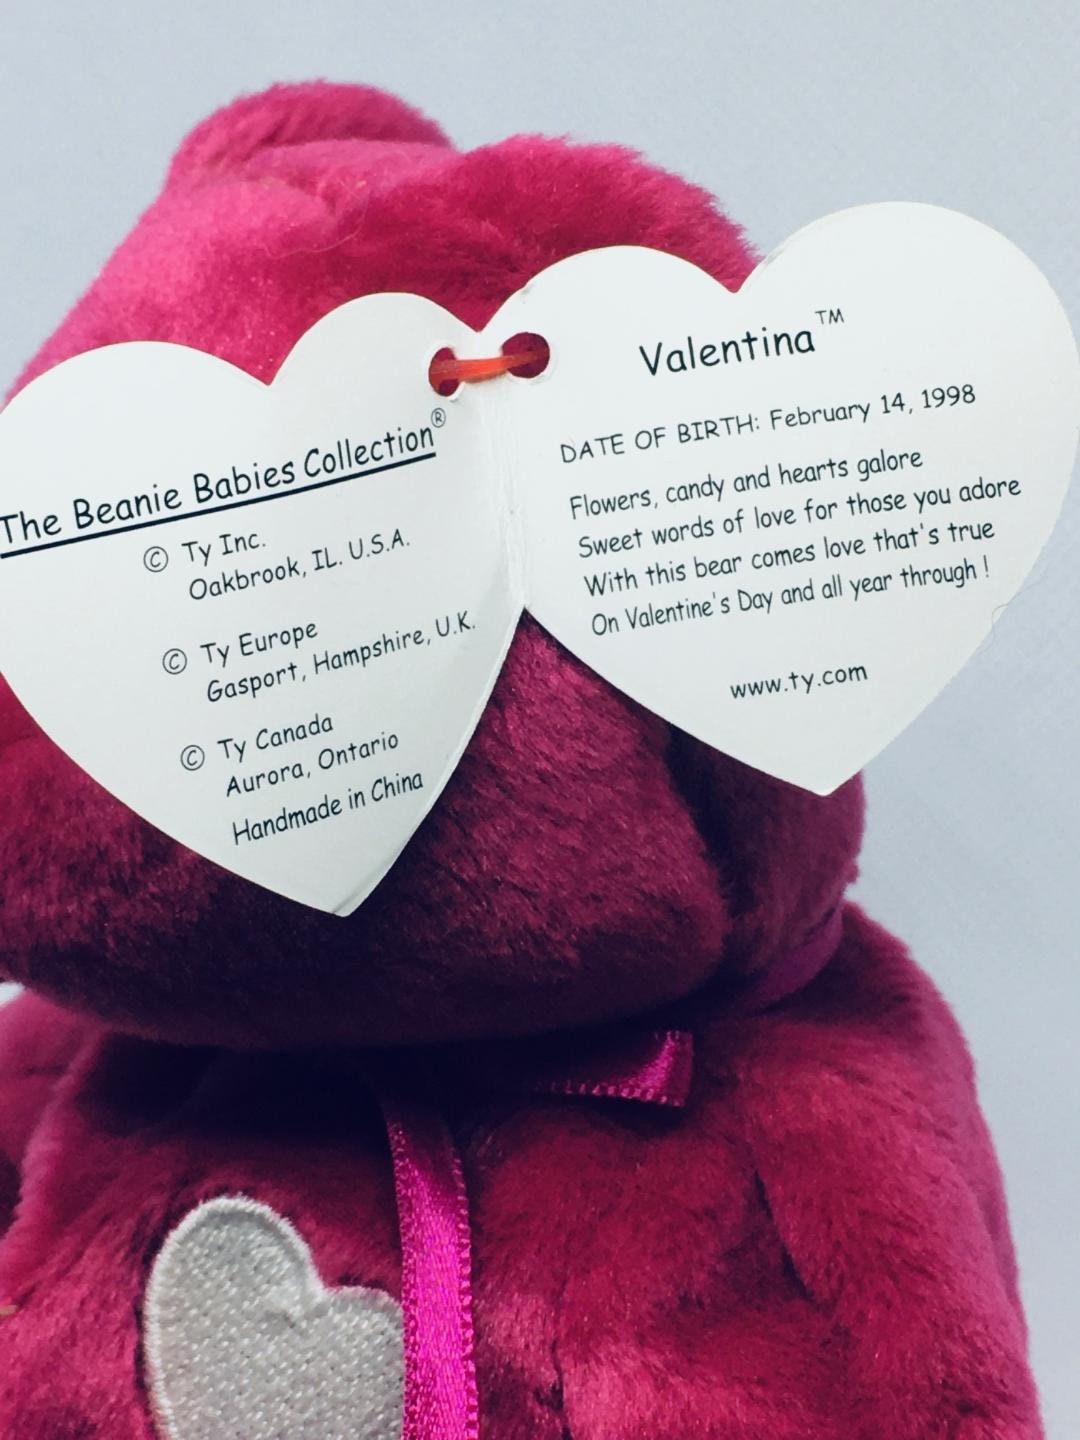 The Beanie Babies Collection®
© Ty Inc.
Oakbrook, IL. U.S.A.
© Ty Europe
Gasport, Hampshire, U.K.
© Ty Canada
Aurora, Ontario
Handmade in China
Valentina™
DATE OF BIRTH: February 14, 1998
Flowers, candy and hearts galore
Sweet words of love for those you adore
With this bear comes love that's true
On Valentine's Day and all year through !
www.ty.com